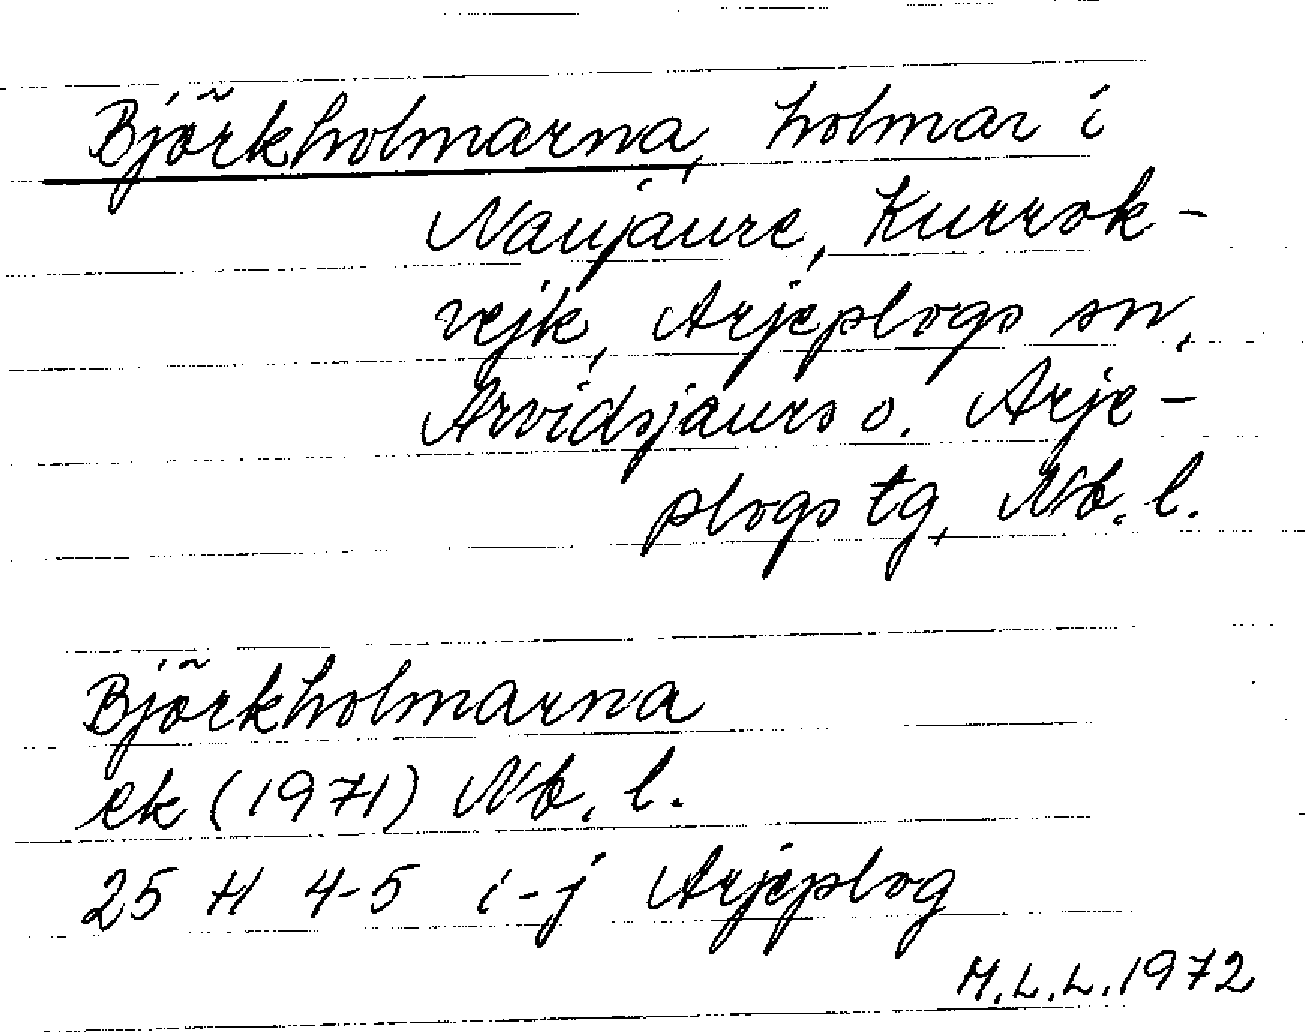 Björkholmarna, holmar i
Naujaure, Kurrok-
vejk, Arjeplogs sn,
Arvidsjaurs o. Arje-
plogs tg, Nb. l.
Björkholmarna
ek (1971) Nb. l.
25 H 4-5 i-j Arjeplog
M.L.L. 1972